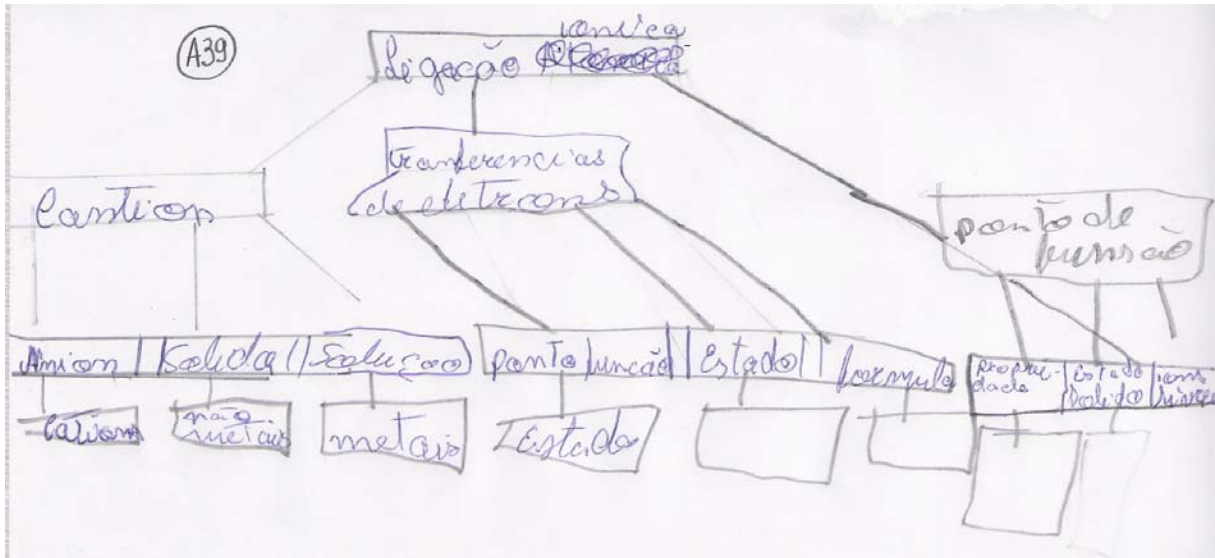 A39
ionica
Ligação
tranferencias
de eletrons
Cantion
ponto de
funsão
Anion
Solida
Solução
ponto funcão
Estado
formula
proprie-
dade
Estado
Solido
Cations
não
metais
metais
Estado